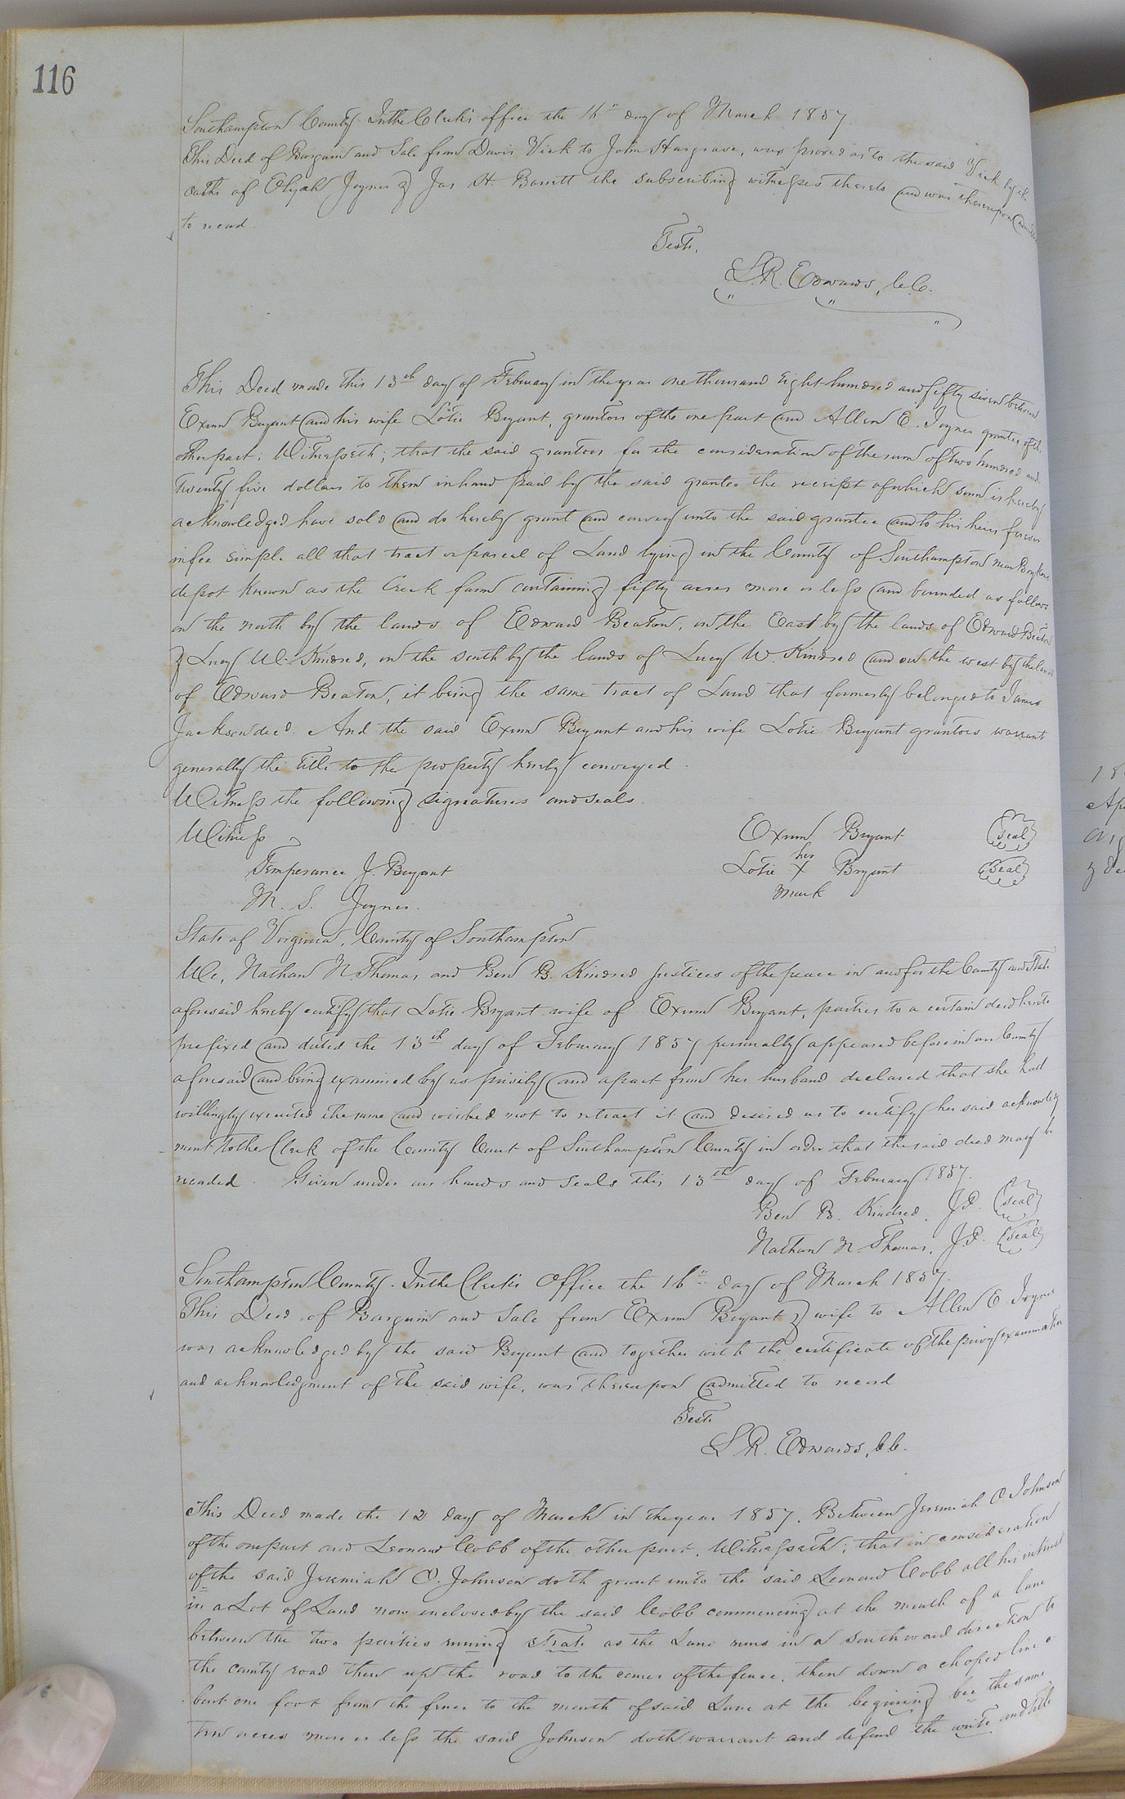 116
Southampton County. In the Clerk's office the 16th day of March 1857.
This Deed of Bargain and Sale from Davis Vick to John Hargrave, was proved as to the said Vick by the
oaths of Elijah Joyner & Jas H. Barrett the subscribing witnesses thereto and was thereupon
to record.
Teste,
L. R. Edwards, C.C.
This Deed made this 13th day of February in the year one thousand eight hundred and fifty seven between
Exum Bryant and his wife Lotie Bryant, grantors of the one part and Allen E. Joyner grantee of the
other part: Witnesseth; that the said grantors for the consideration of the sum of two hundred and
twenty five dollars to them in hand paid by the said grantee the receipt of which sum is hereby
acknowledged have sold and do hereby grant and convey unto the said grantee and to his heirs forever
in fee simple all that tract or parcel of Land lying in the County of Southampton near
depot known as the Creek farm containing fifty acres more or less and bounded as follows
on the north by the lands of Edward Beaton, on the East by the lands of Edward Beaton
& Lucy W. Kindred, on the south by the lands of Lucy W. Kindred and on the west by the land
of Edward Beaton, it being the same tract of Land that formerly belonged to James
Jackson decd. And the said Exum Bryant and his wife Lotie Bryant grantors warrant
generally the title to the property hereby conveyed.
Witness the following signatures and seals.
Witness Exum Bryant (Seal)
Temperance J. Bryant Lotie her X mark Bryant (Seal)
M. S. Joyner.
State of Virginia, County of Southampton
We, Nathan N. Thomas and Ben B. Kindred justices of the peace in and for the County and State
aforesaid hereby certify that Lotie Bryant wife of Exum Bryant, parties to a certain deed hereto
prefixed and dated the 13th day of February 1857 personally appeared before in our County
aforesaid and being examined by us privily and apart from her husband declared that she had
willingly executed the same and wished not to retract it and desired us to certify her said acknowledg
ment to the Clerk of the County Court of Southampton County in order that the said deed may be
recorded. Given under our hands and seals this 13th day of February 1857.
Ben B. Kindred. J.P. (Seal)
Nathan N Thomas. J.P. (Seal)
Southampton County. In the Clerk's Office the 16th day of March 1857.
This Deed of Bargain and Sale from Exum Bryant & wife to Allen E Joyner
was acknowledged by the said Bryant and together with the certificate of the privy examination
and acknowledgment of the said wife, was thereupon admitted to record
Teste
L R. Edwards, CC.
This Deed made the 12 day of March in the year 1857. Between Jeremiah O Johnson
of the one part and Leonard Cobb of the other part. Witnesseth; that in consideration
of the said Jeremiah O. Johnson doth grant unto the said Leonard Cobb all his interest
in a Lot of Land now inclosed by the said Cobb commencing at the mouth of a lane
between the two parties runing strate as the Lane runs in a southward direction to
the county road then up the road to the corner of the fence, then down a choped line a
bout one foot from the fence to the mouth of said Lane at the begining bee the same
two acres more or less the said Johnson doth warrant and defend the write and title